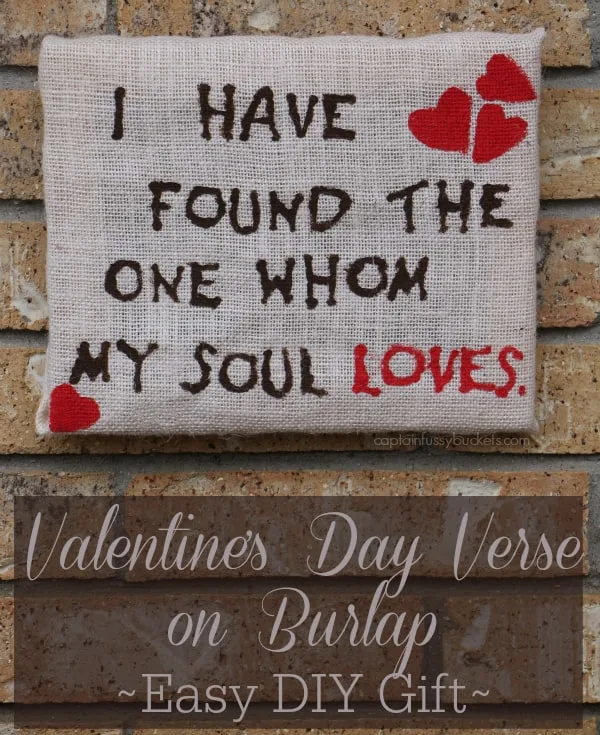 I HAVE
FOUND THE
ONE WHOM
MY SOUL LOVES.
captainfussybuckets.com
Valentine's Day Verse
on Burlap
~Easy DIY Gift~